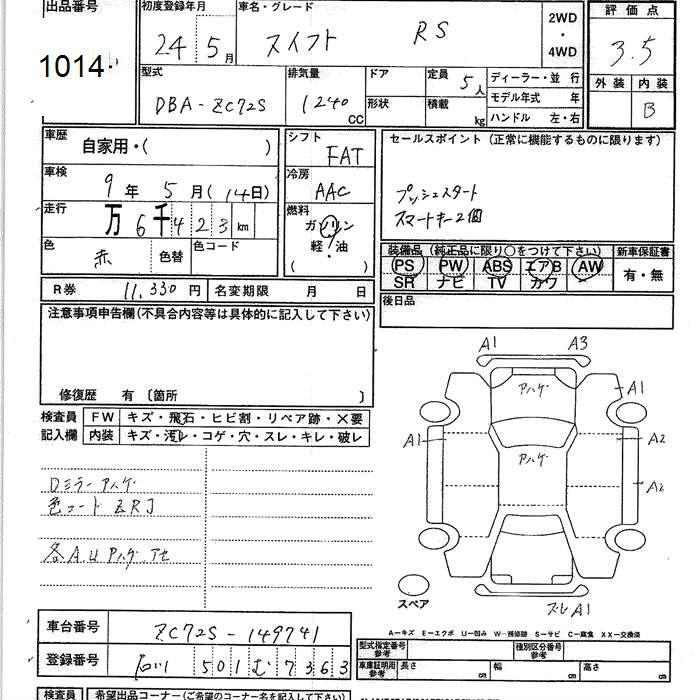 出品番号 初度登録年月 車名・グレード 2WD・4WD 評価点
1014 24年 5月 スイフト RS 3.5
型式 排気量 ドア 定員 5人 ディーラー・並行 外装 内装
DBA-ZC72S 1240 CC 形状 積載 kg モデル年式 年 B
ハンドル 左・右
車歴 自家用・( ) シフト FAT セールスポイント (正常に機能するものに限ります)
車検 9年 5月 (14日) 冷房 AAC プッシュスタート
走行 万 6千 4 2 3 km 燃料 ガソリン スマートキー2個
色 赤 色替 色コード 軽・油
( )
装備品 (純正品に限り○をつけて下さい) 新車保証書
PS PW ABS エアB AW 有・無
SR ナビ TV カワ
R券 11,330円 名変期限 月 日 後日品
注意事項申告欄(不具合内容等は具体的に記入して下さい)
修復歴 有 〔箇所 〕
検査員 FW キズ・飛石・ヒビ割・リペア跡・✕要
記入欄 内装 キズ・汚レ・コゲ・穴・スレ・キレ・破レ
A1 A3
アハゲ A1
A1 A2
アハゲ
A2
Dミラーアハゲ
色コード ZRJ
各AUアハゲアセ
スペア
スレA1
A-キズ E-エクボ U-凹み W-補修跡 S-サビ C-腐食 XX-交換済
車台番号 ZC72S-149741
登録番号 石川 501 む 7363
型式指定番号 参考 種別区分番号 参考
車庫証明用 参考 長さ cm 幅 cm 高さ cm
検査員 希望出品コーナー(ご希望のコーナー名を記入して下さい)